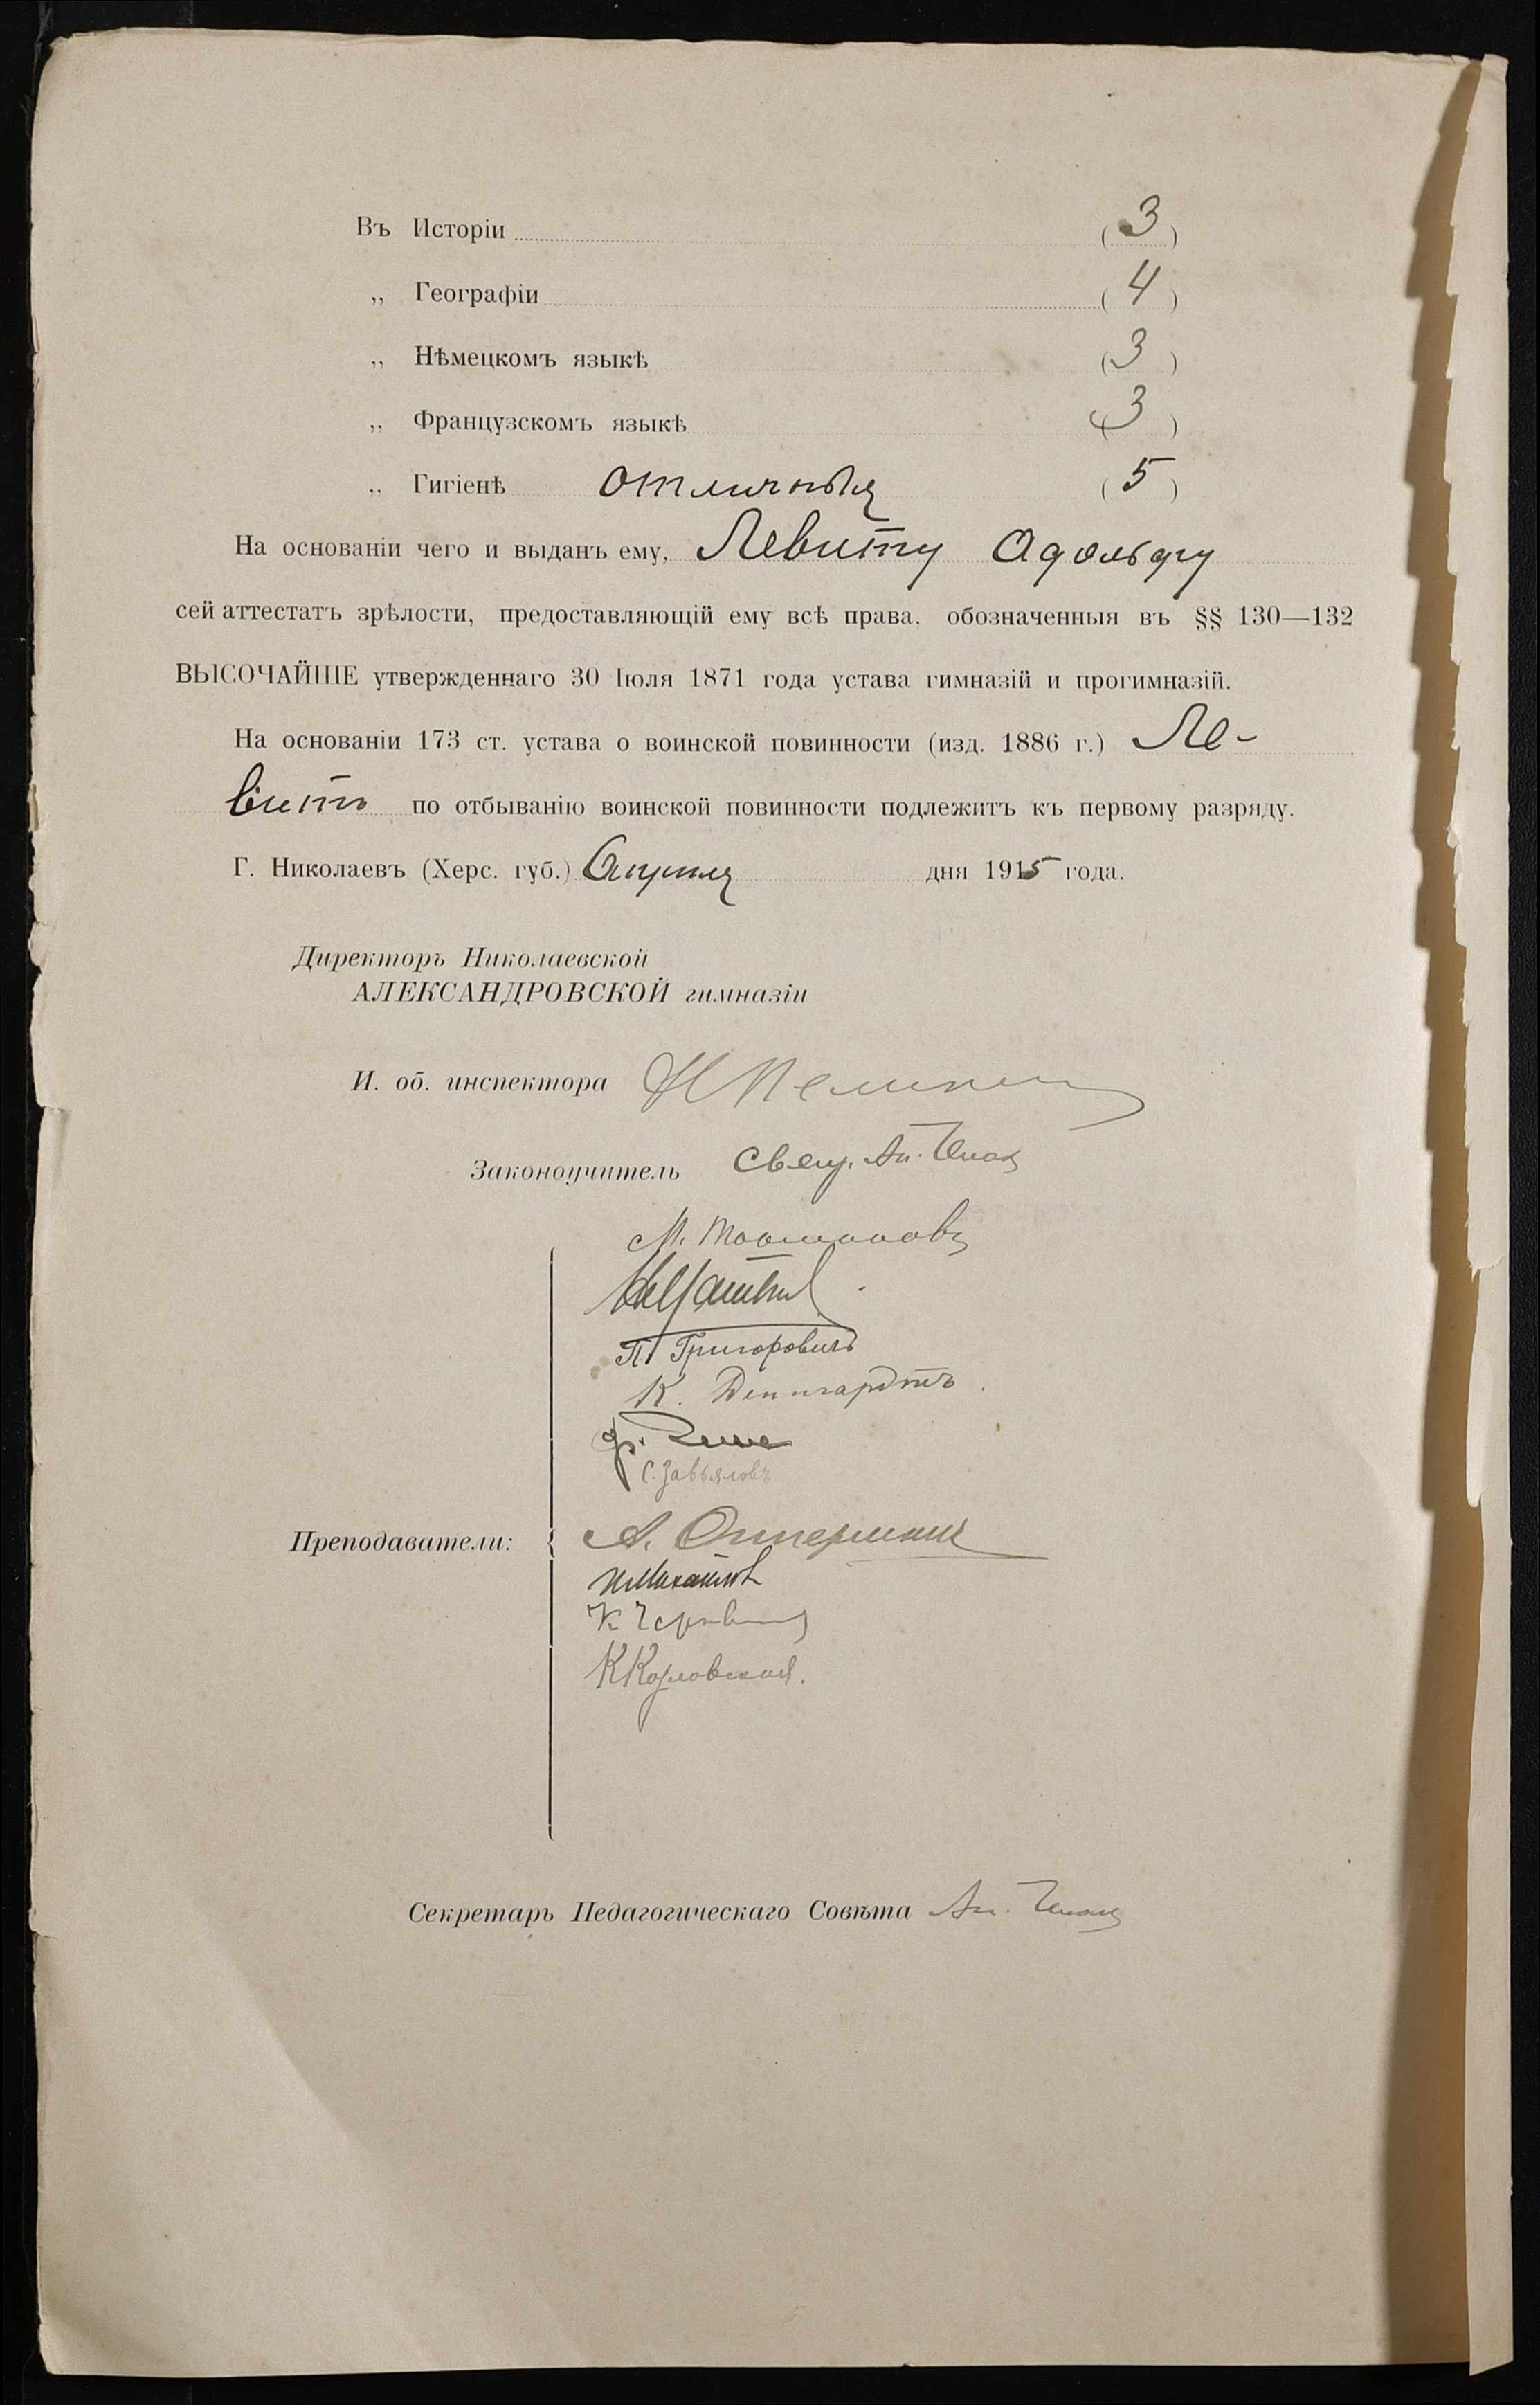 Въ Исторіи (3)
„ Географіи (4)
„ Нѣмецкомъ языкѣ (3)
„ Французскомъ языкѣ (3)
„ Гигіенѣ отличныя (5)
На основаніи чего и выданъ ему, Левиту Адольфу
сей аттестатъ зрѣлости, предоставляющій ему всѣ права, обозначенныя въ §§ 130—132
ВЫСОЧАЙШЕ утвержденнаго 30 Іюля 1871 года устава гимназій и прогимназій.
На основаніи 173 ст. устава о воинской повинности (изд. 1886 г.) Ле-
витъ по отбыванію воинской повинности подлежитъ къ первому разряду.
Г. Николаевъ (Херс. губ.) Апрѣля дня 1915 года.
Директоръ Николаевской
АЛЕКСАНДРОВСКОЙ гимназіи
И. об. инспектора
Законоучитель Свящ. Ал.
М.
П. Григоровичъ
К. Денгардтъ
С. Завьяловъ
Преподаватели: А.
И. Михайловъ
К
К Козловскій.
Секретарь Педагогическаго Совѣта Ал.